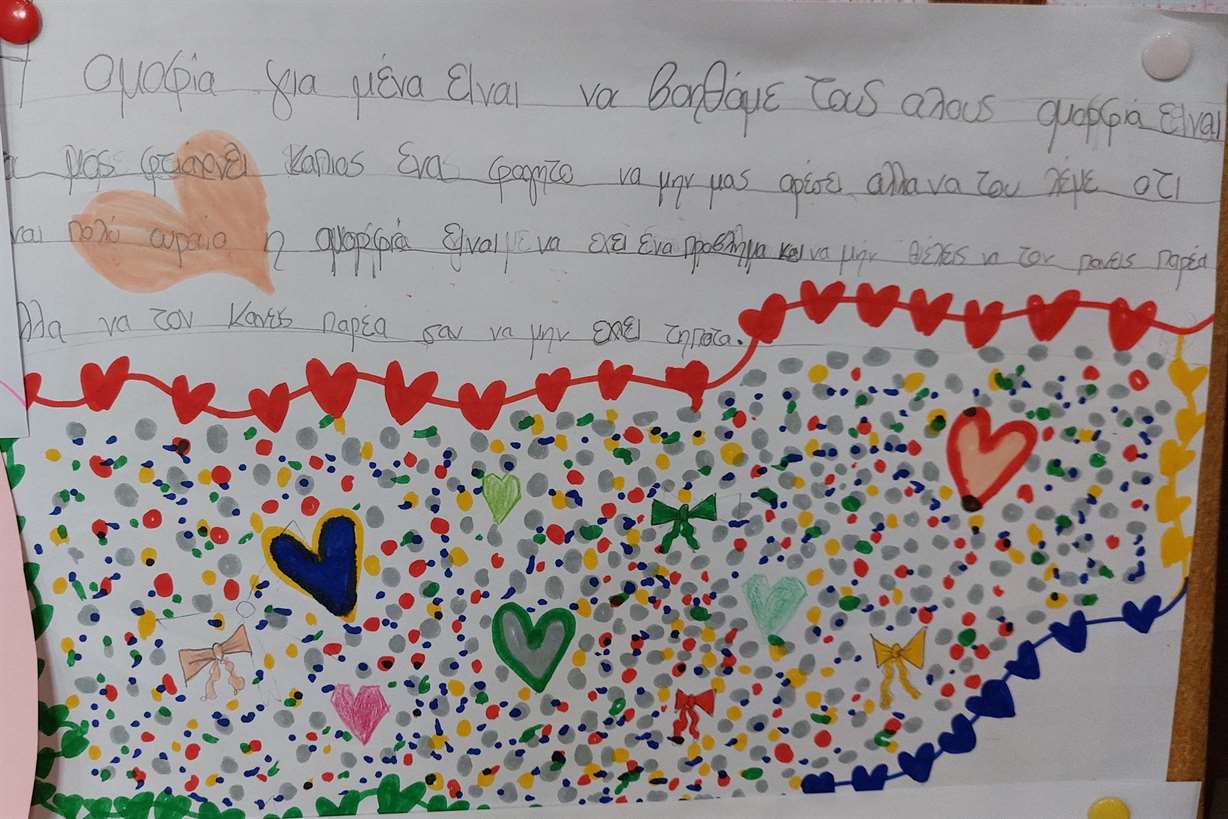 ομοφία για μένα είναι να βοηθάμε τους αλους ομορφιά είναι
μας φτιάρνει καπιος ένα φαγητο να μην μας αρέσει αλλα να του λέμε οτι
ναι πολύ ουραίο η ομορφιά είναι να εχει ένα πρόβλημα και να μην θέλεις να τον κανεις παρέα
λλα να τον κανεις παρέα σαν να μην εχει τηποτα.